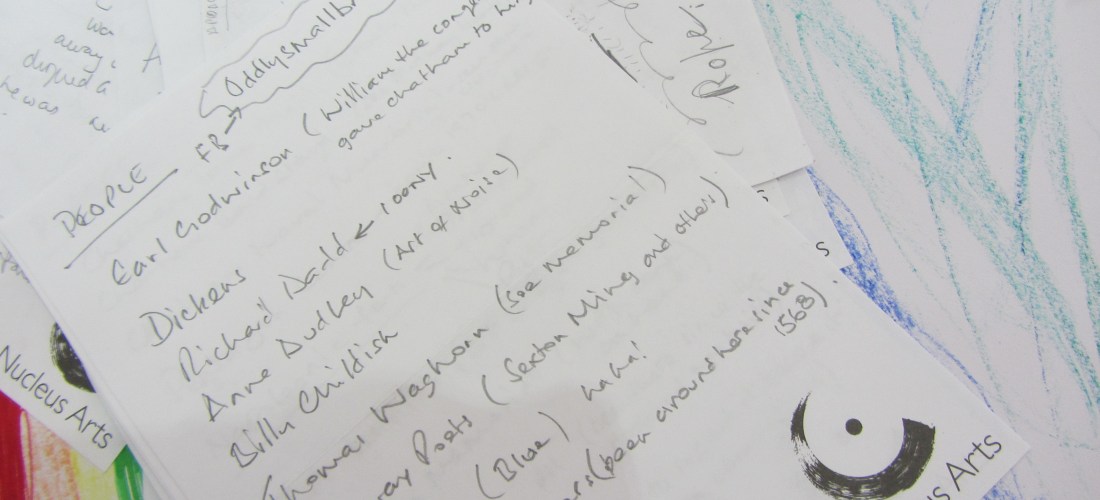 away
FB → Oddlysmallbr
PEOPLE
Earl Godwinson (William the
gave chatham to
Dickens
Richard Dadd ← loony.
Anne Dudley (Art of Noise)
Billy Childish
Thomas Waghorn (see memorial)
Poets (Sexton Ming and others)
(Blue) haha!
(been around here since
1568).
Nucleus Arts
s Arts
s